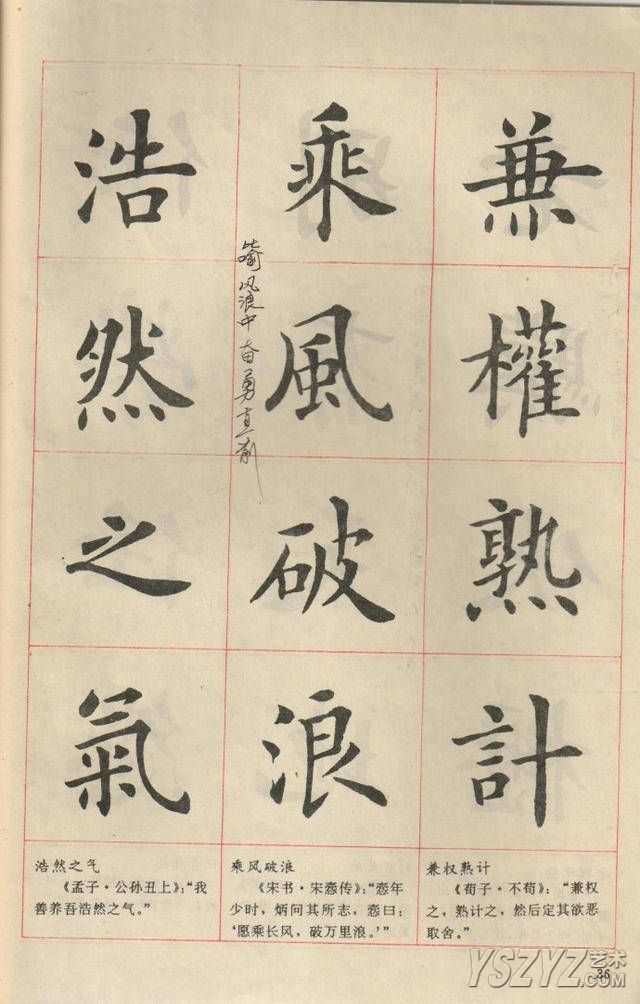 兼權熟計
乘風破浪
喻风浪中奋勇直前
浩然之氣
兼权熟计
《荀子·不荀》：“兼权
之，熟计之，然后定其欲恶
取舍。”
乘风破浪
《宋书·宋悫传》：“悫年
少时，炳问其所志，悫曰：
‘愿乘长风，破万里浪。’”
浩然之气
《孟子·公孙丑上》：“我
善养吾浩然之气。”
36
YSZYZ艺术.COM